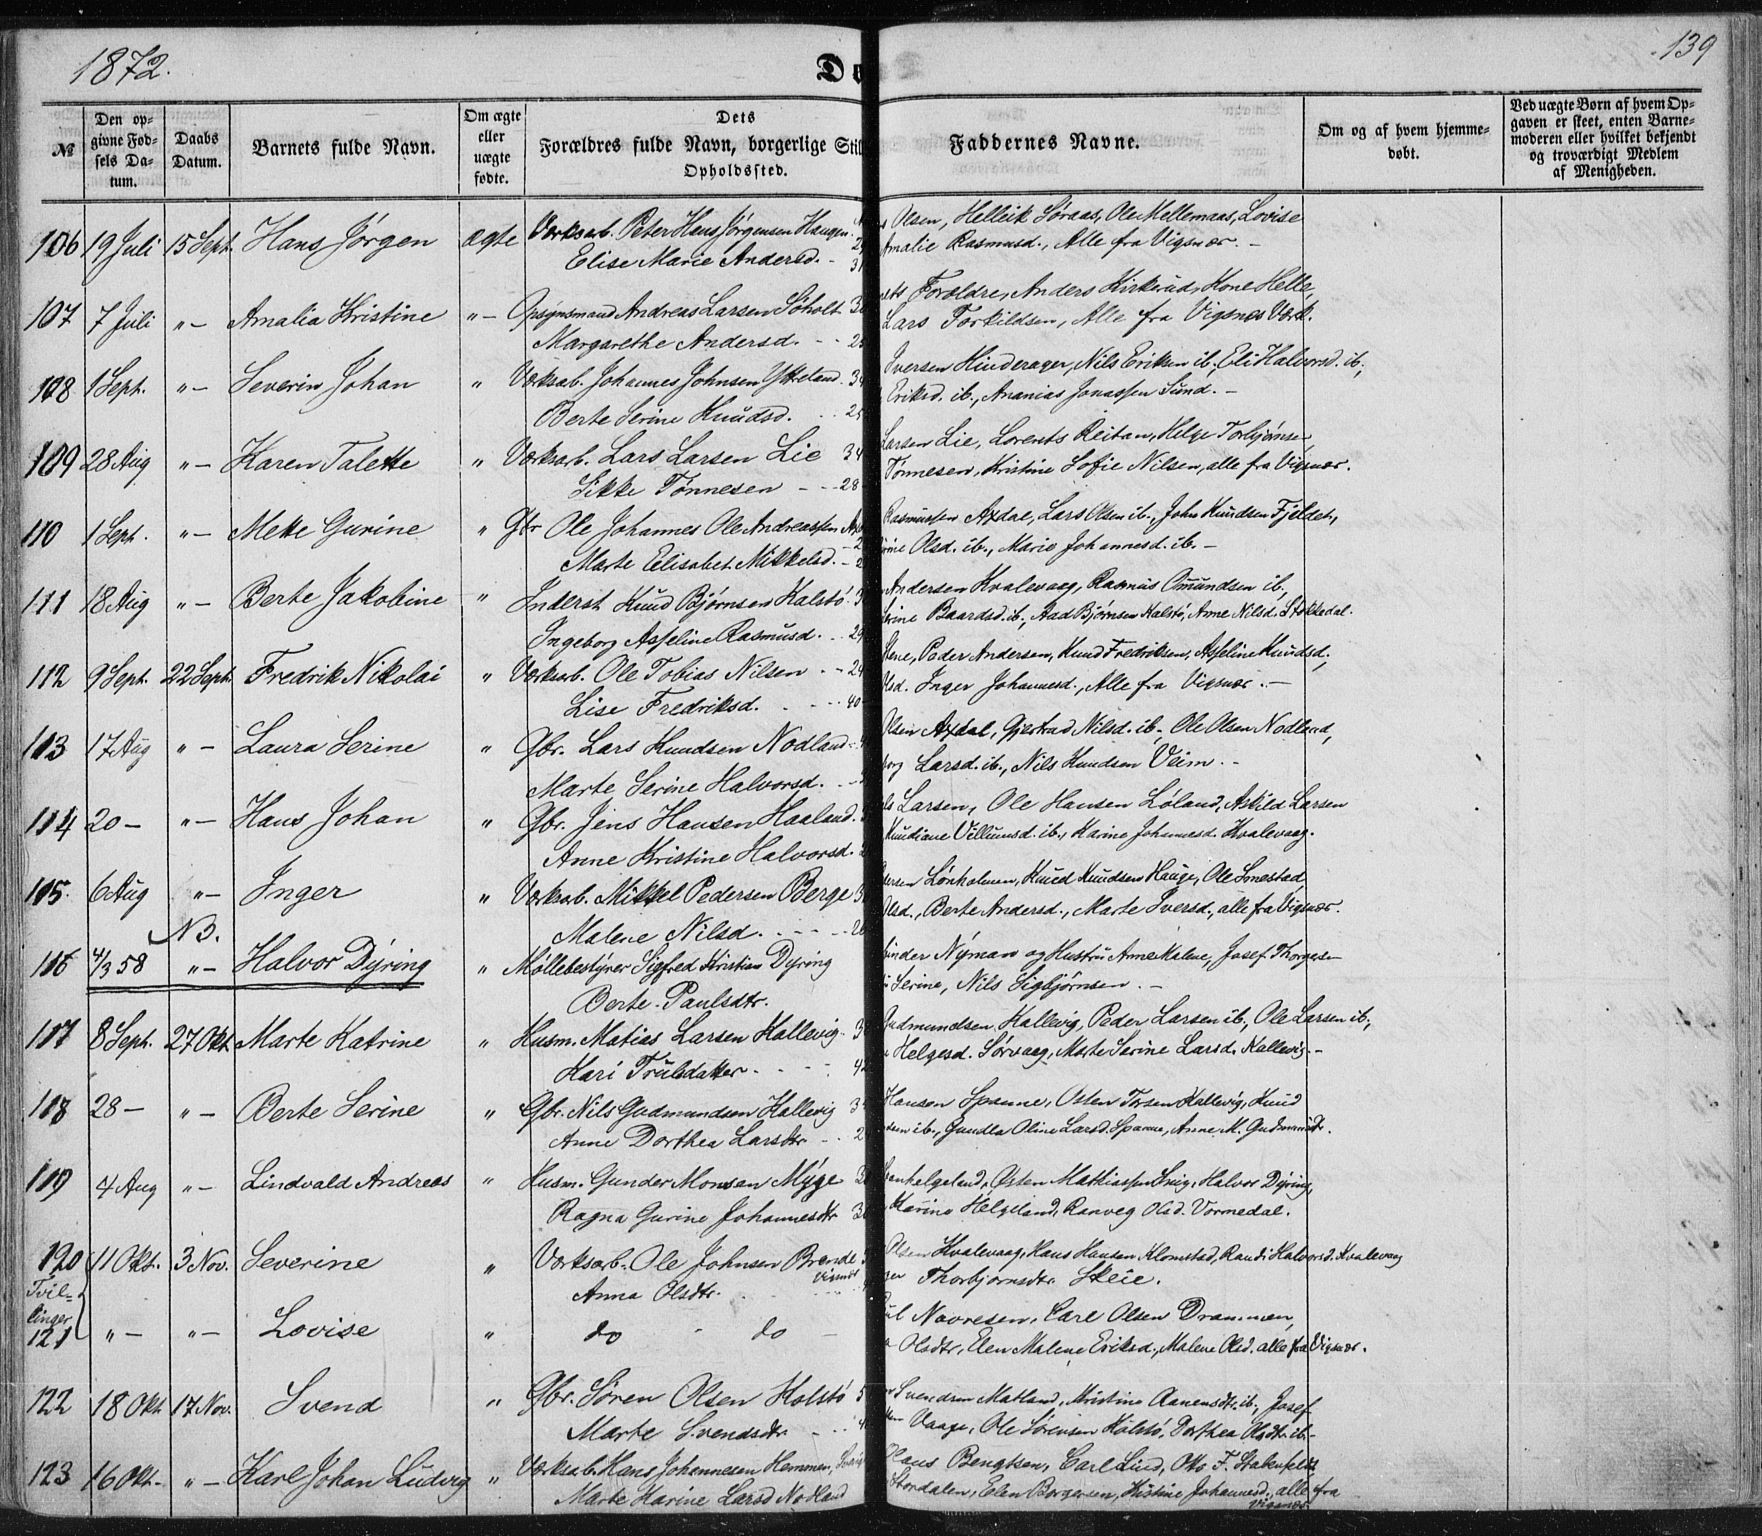 1872.
139
Do
№
Den op-
givne Fød-
sels Da-
tum.
Daabs
Datum.
Barnets fulde Navn.
Om ægte
eller
uægte
fødte.
Dets
Forældres fulde Navn, borgerlige Stil
Opholdssted.
Faddernes Navne.
Om og af hvem hjemme-
døbt.
Ved uægte Børn af hvem Op-
gaven er skeet, enten Barne-
moderen eller hvilket bekjendt
og troværdigt Medlem
af Menigheden.
106 19 Juli 15 Sept. Hans Jørgen ægte Værksarb. Peter Hans Jørgensen Haugen
Elise Marie Andersd. - 31
Olsen, Helleik Søraas, Ole Mellemaas, Lovise
Amalie Rasmusd., Alle fra Vigsnæs. -
107 7 Juli "- Amalia Kristine "- Opsynsmand Andreas Larsen Søholt
Margarethe Andersd. - - 25
Forældre, Anders Kirkerud, Kone Helle,
Lars Torkildsen, Alle fra Vigsnes Værk.
108 1 Sept. "- Severin Johan " Værksab. Johannes Johnsen Ytreland 34
Berte Serine Knudsd. - - 25
Iversen Hinderager, Nils Eriksen ib., Eli Halvorsd. ib.,
Eriksd. ib., Ananias Jonassen Sund. -
109 28 Aug "- Karen Talette " Værksarb. Lars Larsen Lie 34
Sikke Tønnesen - - 28
Larsen Lie, Lorents Reitan, Helge Torbjønse
Tønnesen, Kristine Sofie Nilsen, alle fra Vigsnær.
110 1 Sept. "- Mette Gurine " Gbr Ole Johannes Ole Andreassen
Marte Elisabet Mikkelsd. -
Rasmussen Axdal, Lars Olsen ib., John Knudsen Fjeldet,
Olsd. ib., Marie Johannesd. ib. -
111 18 Aug "- Berte Jakobine " Inderst Knud Bjørnsen Kalstø
Ingeborg Asseline Rasmusd. - - 29
Andersen Kvalevaag, Rasmus Omundsen ib.,
Serine Baardsd. ib., Aad Bjørnsen Kalstø, Anne Nilsd. Stokkedal.
112 9 Sept. 22 Sept. Fredrik Nikolai " Værksarb. Ole Tobias Nilsen - - 24
Lise Fredriksd. - - - 40
Peder Andersen, Knud Fredriksen, Asseline Knudsd.,
Inger Johannesd., Alle fra Vigsnær. -
113 17 Aug "- Laura Serine " Gbr. Lars Knudsen Nodland
Marte Serine Halvorsd. -
Olsen Axdal, Gjertrud Nilsd. ib., Ole Olsen Nodland,
Larsd. ib., Nils Knudsen Veim. -
114 20 - "- Hans Johan " Gbr. Jens Hansen Haaland.
Anne Kristine Halvorsd.
Larsen, Ole Hansen Løland, Askild Larsen
Knudiane Villumsd. ib., Karine Johannesd. Kvalevaag.
115 6 Aug "- Inger " Værksarb. Mikkel Pedersen Berge
Malene Nilsd. - - - -
Lønholmen, Knud Knudsen Hauge, Ole Smestad
Olsd., Berte Andersd., Marte Iversd., alle fra Vigsnær.
NB.
116 4/3 58 "- Halvor Dÿring " Møllebestÿrer Sigfred Kristian Dÿring
Berte Paulsdtr.
Nÿman og Hustru Anne Malene, Josef Thorgese
Serine, Nils Sigbjørnsen. -
117 8 Sept. 27 Okt Marte Katrine " Husm. Matias Larsen Kallevig.
Kari Trulsdatter. - - - - 42
Gudmundsen Kallevig, Peder Larsen ib., Ole Larsen ib.,
Helgesd. Sørvaag, Marte Serine Larsd. Kallevig. -
118 28 - "- Berte Serine " Gbr. Nils Gudmundsen Kallevig
Anne Dorthea Larsdtr - -
Hansen Spanne, Osten Torsen Kallevig, Knud
ib., Gundla Oline Larsd. Spanne, Anne M. Gudmunsdtr.
119 4 Aug "- Lindvald Andreas " Husm. Gunder Monsen Mÿge
Ragna Gurine Johannesdtr
Østen Mathiassen Snig, Halvor Dÿring,
Karine Helgeland, Ranveg Olsd. Vormedal.
120 11 Okt. 3 Nov. Severine " Værksarb. Ole Johnsen Brende
Vigsnæs
Anna Olsdtr.
Olsen Kvalevaag, Hans Hansen Klomstad, Randi Halvorsd. Kvalevaag
Thorbjørnsdtr. Skeie.
Tvil-
linger
121 "- "- Lovise " do - do -
Navresen, Carl Olsen Drammen,
Olsdtr, Elen Malene Eriksd., Malene Olsd. alle fra Vigsnær.
122 18 Okt 17 Nov. Svend " Gbr. Søren Olsen Kalstø
Marte Svendsdtr
Svendsen Matland, Kristine Aanensdtr. ib., Josef
Vaage, Ole Sørensen Kalstø, Dorthea Olsdtr. ib. -
123 16 Okt. "- Karl Johan Ludvig " Værksab. Hans Johannesen Hemmen,
Marte Karine Larsd Nodland
Bengtsen, Carl Lind, Otto F. Stakenfeldt,
Stordalen, Elen Borgersen, Kistine Johannesd., alle fra
Vigsnær